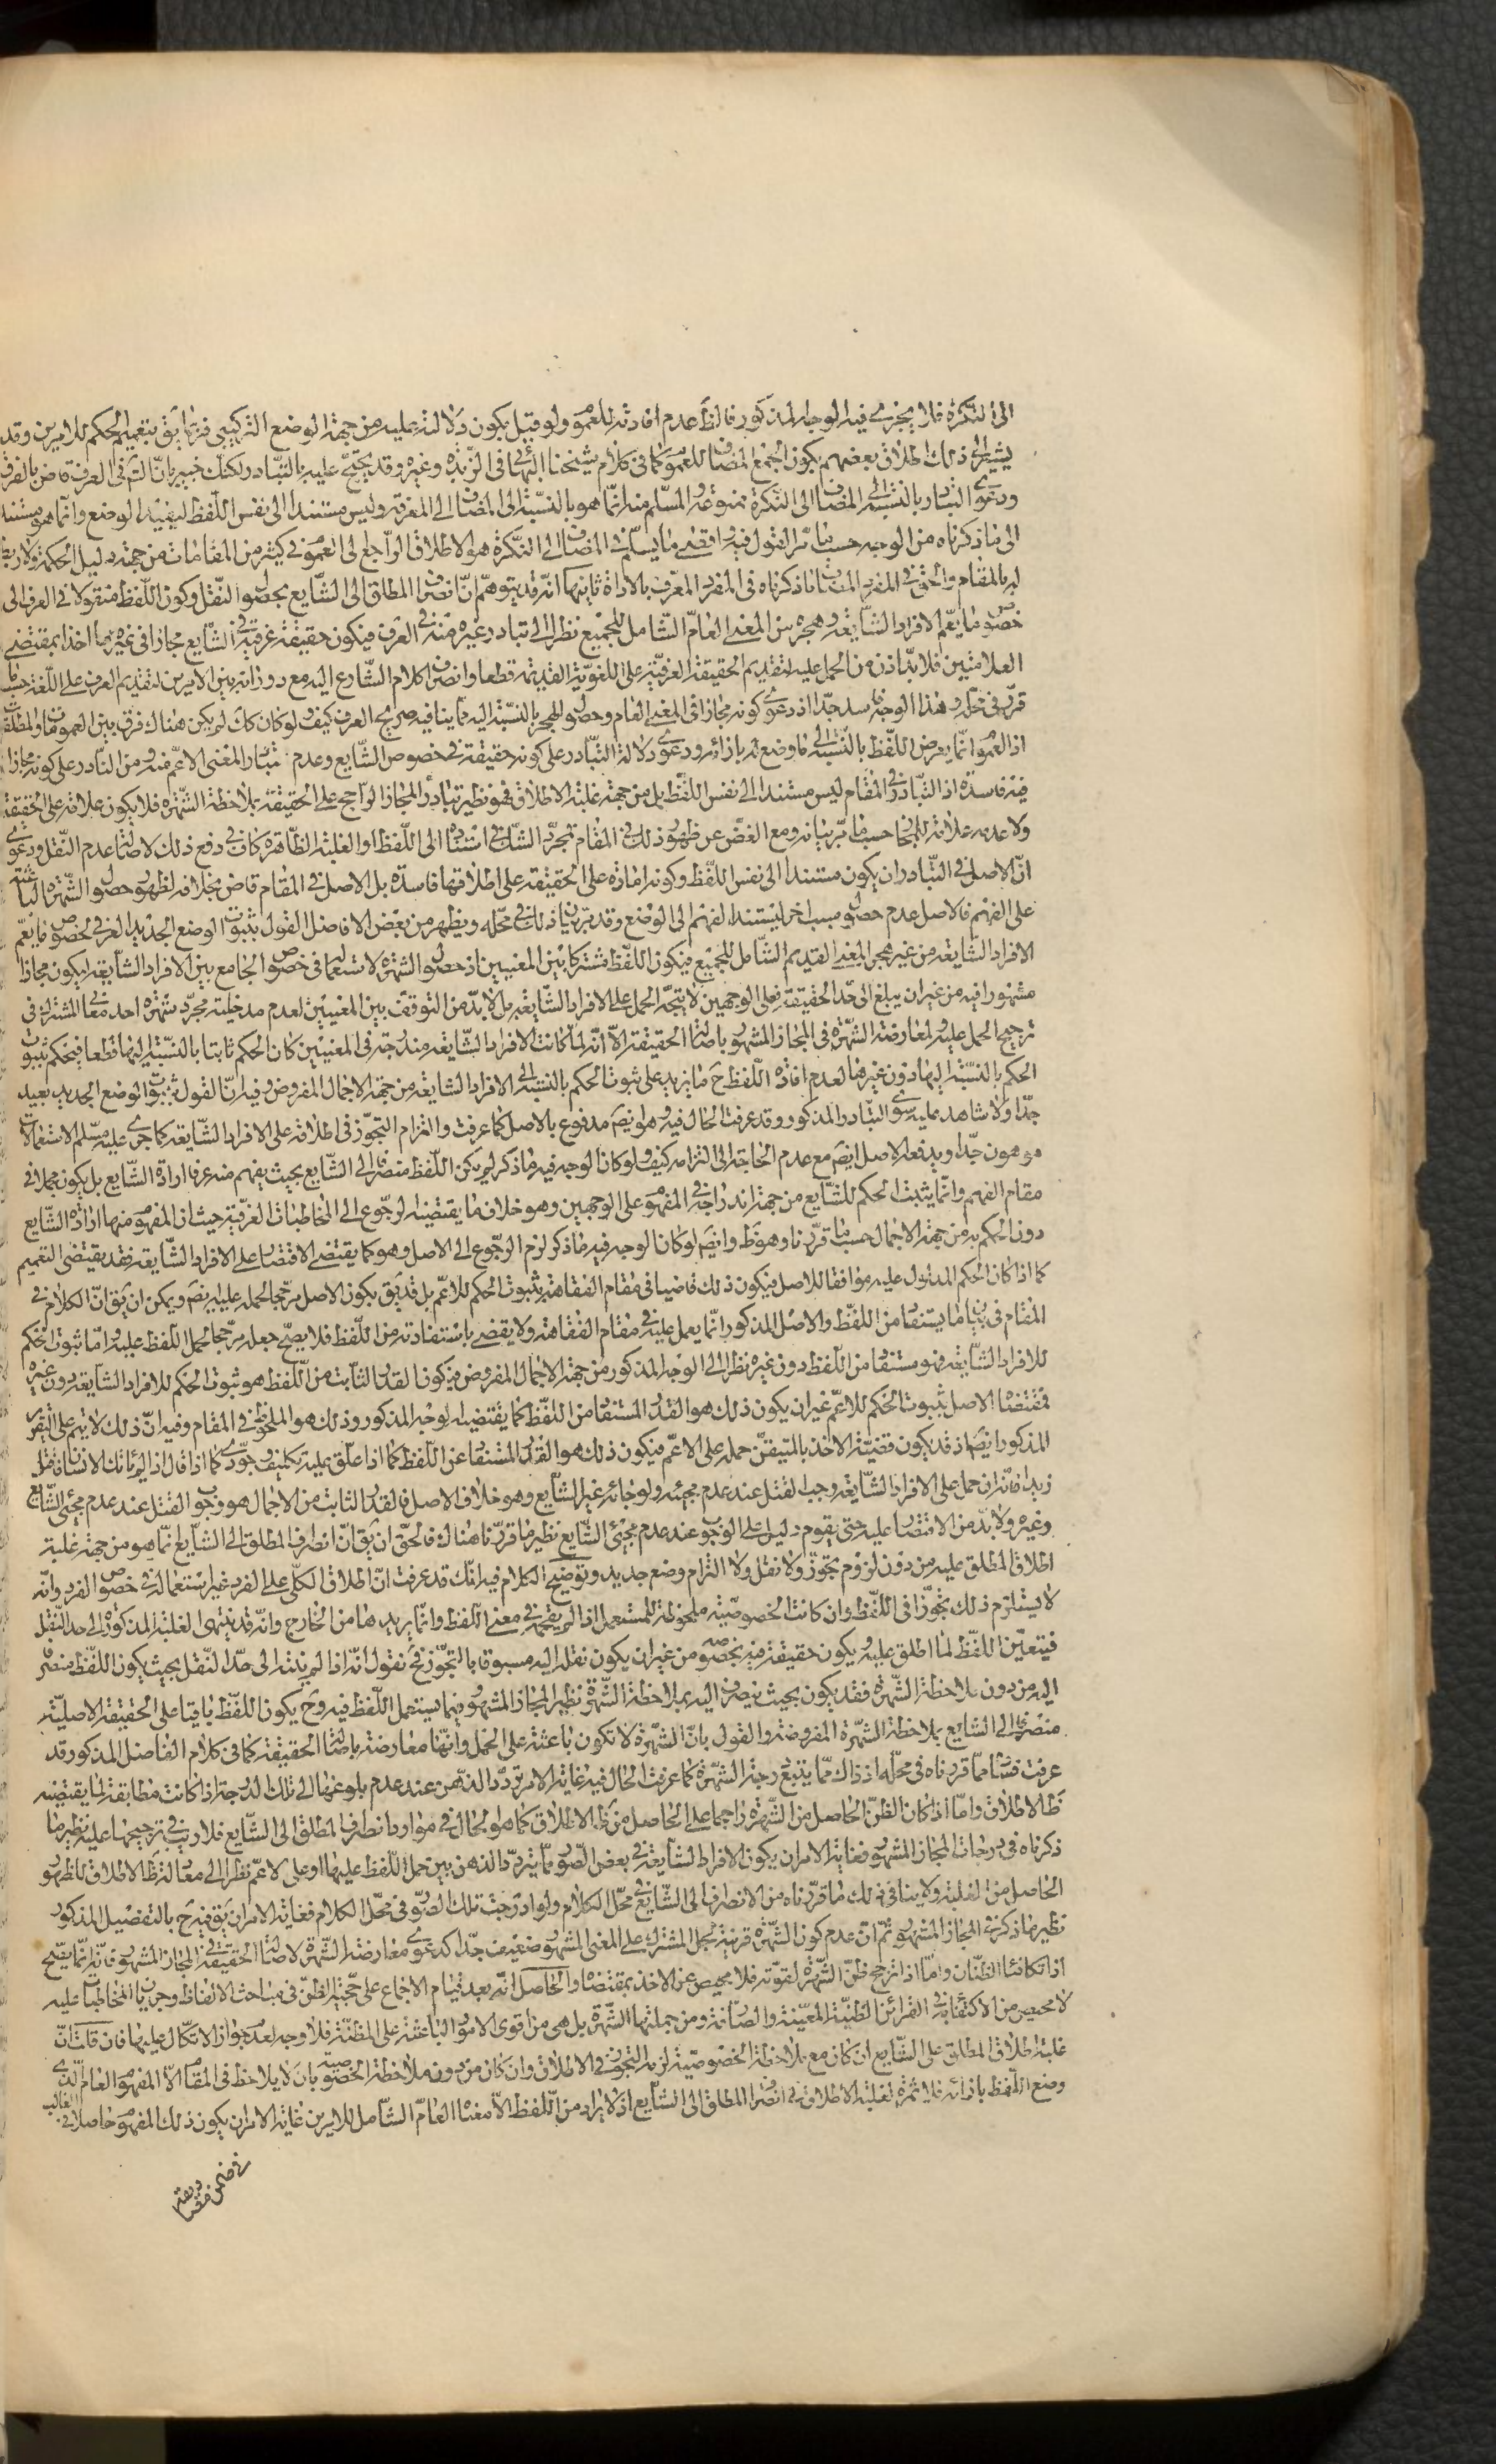 الى النكرة فلا يجزى فيه الوجه المذكور فالظ عدم افادته للعموم ولو قيل بكون دلالته عليه من جهة الوضع التركيبى فربما يق بتعميم الحكم للامرين وقد
يشير الى ذلك اطلاق بعضهم بكون الجمع المضاف للعموم كما فى كلام شيخنا البهائى فى الزبدة وغيره وقد يحتج عليه بالتبادر لكنك خبير بان التم فى العرف قاض بالفرق
ودعوى التبادر بالنسبة الى المضاف الى النكرة ممنوعة والمسلم منه انما هو بالنسبة الى المضاف الى المعرفة وليس مستندا الى نفس اللفظ ليفيد الوضع وانما هو مستند
الى ما ذكرناه من الوجه حسب ما مر القول فيه واقصى ما يسلم فى المضاف الى النكرة هو الاطلاق الراجع الى العموم فى كثير من المقامات من جهة دليل الحكمة ولا ربط
له بالمقام والحق فى المفرد المضاف ما ذكرناه فى المفرد المعرف بالاداة ثانيها انه قد يتوهم ان انصراف المطلق الى الشايع بحصول النقل وكون اللفظ منقولا فى العرف الى
خصوص ما يعم الافراد الشايعة وهجره من المعنى العام الشامل للجميع نظرا الى تبادر غيره منه فى العرف فيكون حقيقة عرفية فى الشايع مجازا فى غيره اخذا بمقتضى
العلامتين فلا بد اذن من الحمل عليه لتقديم الحقيقة العرفية على اللغوية القديمة قطعا وانصراف كلام الشارع اليه مع دورانه بين الامرين لتقديم العرف على اللغة حسب ما
قرر فى محله وهذا الوجه فاسد جدا اذ دعوى كونه مجازا فى المعنى العام وحصول الهجر بالنسبة اليه مما ينافيه صريح العرف كيف ولو كان كك لم يكن هناك فرق بين العموم والمطلقات
اذ العموم انما يعرض اللفظ بالنسبة الى ما وضع له بازائه ودعوى دلالة التبادر على كونه حقيقة فى خصوص الشايع وعدم تبادر المعنى الاعم منه ومن النادر على كونه مجازا
فيه فاسدة اذ التبادر فى المقام ليس مستندا الى نفس اللفظ بل من جهة غلبة الاطلاق فهو نظير تبادر المجاز الراجح على الحقيقة بملاحظة الشهرة فلا يكون علامة على الحقيقة
ولا عدمه علامة للمجاز حسب ما مر بيانه ومع الغض عن ظهور ذلك فى المقام فمجرد الشك فى استناده الى اللفظ او الغلبة الظاهرة كاف فى دفع ذلك لاصالة عدم النقل ودعوى
ان الاصل فى التبادر ان يكون مستندا الى نفس اللفظ وكونه امارة على الحقيقة على اطلاقها فاسدة بل الاصل فى المقام قاض بخلافه لظهور حصول الشهرة الباعثة
على الفهم فالاصل عدم حصول سبب اخر ليستند الفهم الى الوضع وقد مر بيان ذلك فى محله ويظهر من بعض الافاضل القول بثبوت الوضع الجديد العرفى لخصوص ما يعم
الافراد الشايعة من غير هجر المعنى القديم الشامل للجميع فيكون اللفظ مشتركا بين المعنيين اذ حصول الشهرة لاستعماله فى خصوص الجامع بين الافراد الشايعة ليكون مجازا
مشهورا فيه من غير ان يبلغ الى حد الحقيقة فعلى الوجهين لا يتجه الحمل على الافراد الشايعة بل لا بد من التوقف بين المعنيين لعدم مدخلية مجرد شهرة احد معانى المشترك فى
ترجيح الحمل عليه ولمعارضة الشهرة فى المجاز المشهور باصالة الحقيقة الا انه لما كانت الافراد الشايعة مندرجة فى المعنيين كان الحكم ثابتا بالنسبة اليها قطعا فيحكم بثبوت
الحكم بالنسبة اليها دون غيرها لعدم افادة اللفظ ح ما يزيد على ثبوت الحكم بالنسبة الى الافراد الشايعة من جهة الاجمال المفروض وفيه ان القول بثبوت الوضع الجديد بعيد
جدا ولا شاهد عليه سوى التبادر المذكور وقد عرفت الحال فيه وهو ايضا مدفوع بالاصل كما عرفت والتزام التجوز فى اطلاقه على الافراد الشايعة كما جرى عليه مسلم الاستعمالات
موهون جدا ويدفعه الاصل ايضا مع عدم الحاجة الى التزامه كيف ولو كان الوجه فيه ما ذكر لم يكن اللفظ منصرفا الى الشايع بحيث يفهم منه عرفا ارادة الشايع بل يكون مجملا فى
مقام الفهم وانما يثبت الحكم للشايع من جهة اندراجه فى المفهوم على الوجهين وهو خلاف ما يقتضيه الرجوع الى المخاطبات العرفية حيث ان المفهوم منها ارادة الشايع
دون الحكم به من جهة الاجمال حسب ما قررنا وهو ظ وايضا لو كان الوجه فيه ما ذكر لزم الرجوع الى الاصل وهو كما يقتضى الاقتصار على الافراد الشايعة فقد يقتضى التعميم
كما اذا كان الحكم المدلول عليه موافقا للاصل فيكون ذلك قاضيا فى مقام الفقاهة بثبوت الحكم للاعم بل قد يق بكون الاصل مرجحا لحمله عليه ايضا ويمكن ان يق ان الكلام فى
المقام فى بيان ما يستفاد من اللفظ والاصل المذكور انما يعمل عليه فى مقام الفقاهة ولا يقضى باستفادته من اللفظ فلا يصح جعله مرجحا لحمل اللفظ عليه واما ثبوت الحكم
للافراد الشايعة فهو مستفاد من اللفظ دون غيره نظرا الى الوجه المذكور من جهة الاجمال المفروض فيكون القدر الثابت من اللفظ هو ثبوت الحكم للافراد الشايعة دون غيره
فمقتضى الاصل بثبوت الحكم للاعم غير ان يكون ذلك هو القدر المستفاد من اللفظ كما يقتضيه الوجه المذكور وذلك هو الملحوظ فى المقام وفيه ان ذلك لا يتم على التقرير
المذكور ايضا اذ قد يكون قضية الاخذ بالمتيقن حمله على الاعم فيكون ذلك هو القدر المستفاد من اللفظ كما اذا علق عليه تكليف وجودى كما اذا قال اذا لم ياتك الانسان فاقتل
زيدا فانه ان حمل على الافراد الشايعة وجب القتل عند عدم مجيئه ولو جائه غير الشايع وهو خلاف الاصل فالقدر الثابت من الاجمال هو وجوب القتل عند عدم مجيئ الشايع
وغيره ولا بد من الاقتصار عليه حتى يقوم دليل على الوجوب عند عدم مجيئ الشايع نظير ما قررنا هناك فالحق ان يق ان انصراف المطلق الى الشايع انما هو من جهة غلبة
اطلاق المطلق عليه من دون لزوم تجوز ولا نقل ولا التزام وضع جديد وتوضيح الكلام فيه انك قد عرفت ان اطلاق الكلى على الفرد غير استعماله فى خصوص الفرد وانه
لا يستلزم ذلك تجوزا فى اللفظ وان كانت الخصوصية ملحوظة للمستعمل اذا لم يقحمه فى معنى اللفظ وانما يريدها من الخارج وانه قد ينتهى الغلبة المذكورة الى حد النقل
فيتعين اللفظ لما اطلق عليه ويكون حقيقة فيه بخصوصه من غير ان يكون نقله اليه مسبوقا بالتجوز فح نقول انه اذا لم ينته الى حد النقل بحيث يكون اللفظ منصرفا
اليه من دون ملاحظة الشهرة فقد يكون بحيث ينصرف اليه بملاحظة الشهرة نظير المجاز المشهور فيما يستعمل اللفظ فيه وح يكون اللفظ باقيا على الحقيقة الاصلية
منصرفا الى الشايع بملاحظة الشهرة المفروضة والقول بان الشهرة لا تكون باعثة على الحمل وانها معارضة باصالة الحقيقة كما فى كلام الفاضل المذكور قد
عرفت فساده مما قررناه فى محله اذ ذاك مما يتبع درجة الشهرة كما عرفت الحال فيه وغاية الامر تردد الذهن عند عدم بلوغها الى تلك الدرجة اذا كانت مطابقة لما يقتضيه
ظ الاطلاق واما اذا كان الظن الحاصل من الشهرة راجحا على الحاصل من ظ الاطلاق كما هو الحال فى موارد انصراف المطلق الى الشايع فلا ريب فى ترجيحها عليه نظير ما
ذكرناه فى درجات المجاز المشهور فغاية الامر ان يكون الافراد الشايعة فى بعض الصور مما يتردد الذهن بين حمل اللفظ عليها او على الاعم نظرا الى معادلة ظ الاطلاق للظهور
الحاصل من الغلبة ولا ينافى ذلك ما قررناه من الانصراف الى الشايع فى محل الكلام ولو ادرجت تلك الصور فى محل الكلام فغاية الامر ان يق فيه ح بالتفصيل المذكور
نظير ما ذكر فى المجاز المشهور ثم ان عدم كون الشهرة قرينة لحمل المشترك على المعنى المشهور ضعيف جدا كدعوى معارضة الشهرة لاصالة الحقيقة فى المجاز المشهور فانه انما يصح
اذا تكافئا الظنان واما اذا ترجح ظن الشهرة لقوته فلا محيص عن الاخذ بمقتضاه والحاصل انه بعد قيام الاجماع على حجية الظن فى مباحث الالفاظ وجريان المخاطبات عليه
لا محيص من الاكتفاء به فى القرائن الظنية المعينة والصارفة ومن جملتها الشهرة بل هى من اقوى الامور الباعثة على المظنة فلا وجه لعدم جواز الاتكال عليها فان قلت ان
غلبة اطلاق المطلق على الشايع ان كان مع ملاحظة الخصوصية لزمه التجوز فى الاطلاق وان كان من دون ملاحظة الخصوصية بان لا يلاحظ فى المقام الا المفهوم العام الذى
وضع اللفظ بازائه فلا ثمرة لغلبة الاطلاق فى انصراف المطلق الى الشايع اذ لا يراد من اللفظ الا معناه العام الشامل للامرين غاية الامر ان يكون ذلك المفهوم حاصلا فى الغالب
فى ضمن